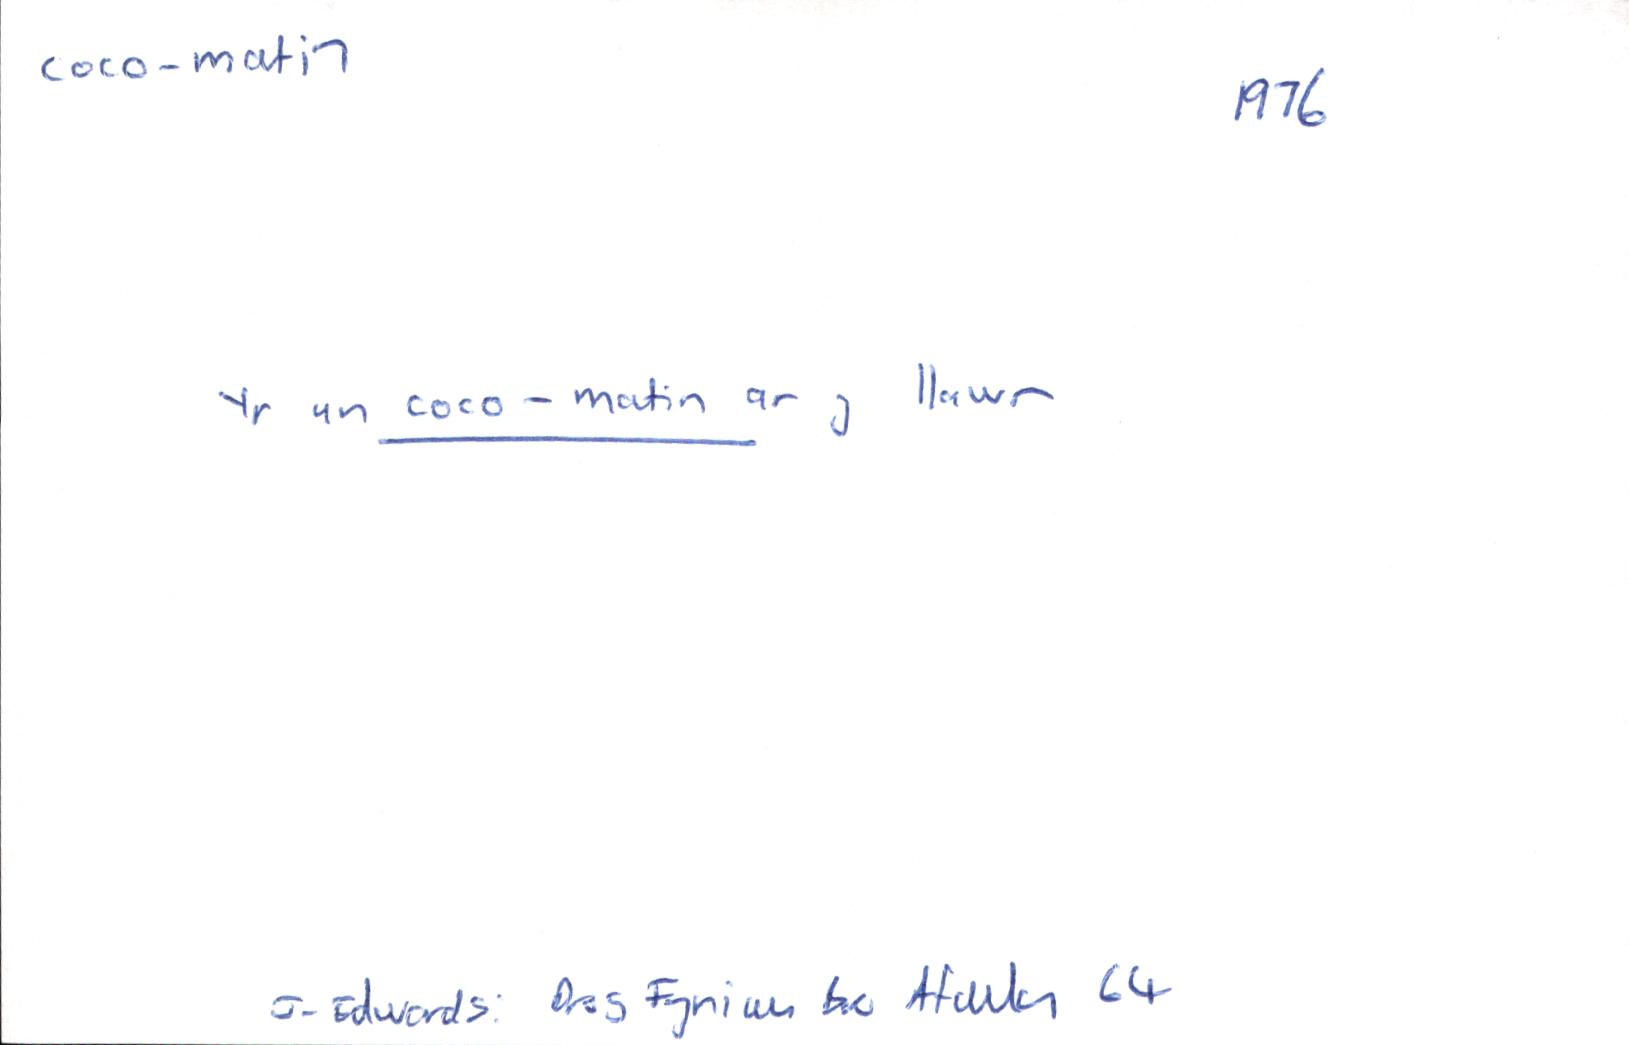 coco-matin
1976
Yr un coco-matin ar y llawr
J. Edwards: Dros Fynium Afalu 64